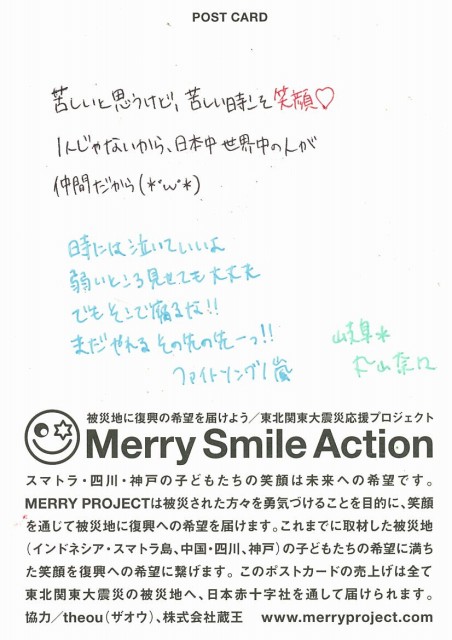 POST CARD
苦しいと思うけど、苦しい時こそ笑顔♡
1人じゃないから、日本中世界中の人が
仲間だから(*'ω'*)
時には泣いていいよ
弱いところ見せても大丈夫
でもそこで腐るな!!
まだやれる その先の先一っ!!
ファイトソング/嵐
岐阜*
丸山奈
被災地に復興の希望を届けよう／東北関東大震災応援プロジェクト
Merry Smile Action
スマトラ・四川・神戸の子どもたちの笑顔は未来への希望です。
MERRY PROJECTは被災された方々を勇気づけることを目的に、笑顔
を通じて被災地に復興への希望を届けます。これまでに取材した被災地
（インドネシア・スマトラ島、中国・四川、神戸）の子どもたちの希望に満ち
た笑顔を復興への希望に繋げます。このポストカードの売上げは全て
東北関東大震災の被災地へ、日本赤十字社を通して届けられます。
協力／theou（ザオウ）、株式会社蔵王 www.merryproject.com